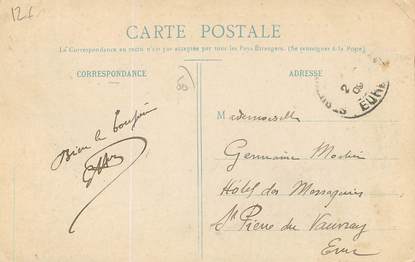 CARTE POSTALE
La Correspondance au recto n'est pas acceptée par tous les Pays Étrangers. (Se renseigner à la Poste)
CORRESPONDANCE
ADRESSE
Bien le bonjour
Mademoiselle
Germaine
Hôtel des Messageries
St Pierre du Vauvray
Eure
EURE